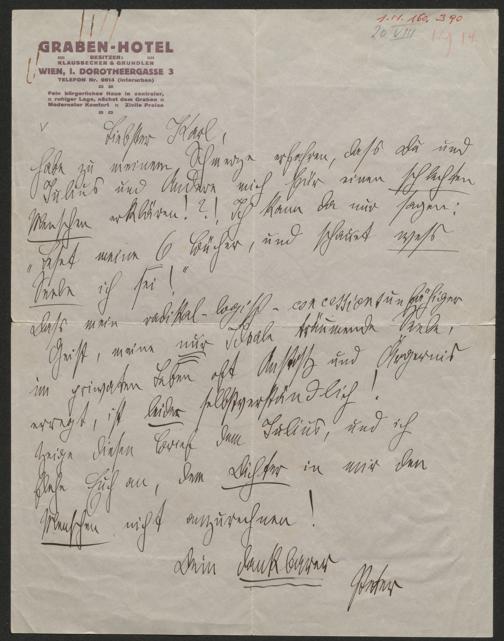 1.11.160.390
20 VIII
GRABEN-HOTEL
BESITZER:
KLAUSBECKER & GRUNDLEN
WIEN, I. DOROTHEERGASSE 3
TELEFON Nr. 9614 (interurban)
Fein bürgerliches Haus in zentraler,
ruhiger Lage, nächst dem Graben
Modernster Komfort Zivile Preise
Liebster Karl,
habe zu meinem Schmerze erfahren, dass Du und
Julius und Andere mich für einen schlechten
Menschen erklären!?! Ich kann da nur sagen:
"Leset meine 6 Bücher, und schauet wess
Seele ich sei!"
Dass mein radikal-logisch-concessionsunfähiger
Geist, meine nur Ideale träumende Seele,
im privaten Leben oft Anstoss und Ärgernis
erregt, ist leider selbstverständlich!
Zeige diesen Brief dem Julius, und ich
flehe Euch an, dem Dichter in mir den
Menschen nicht anzurechnen!
Dein dankbarer
Peter